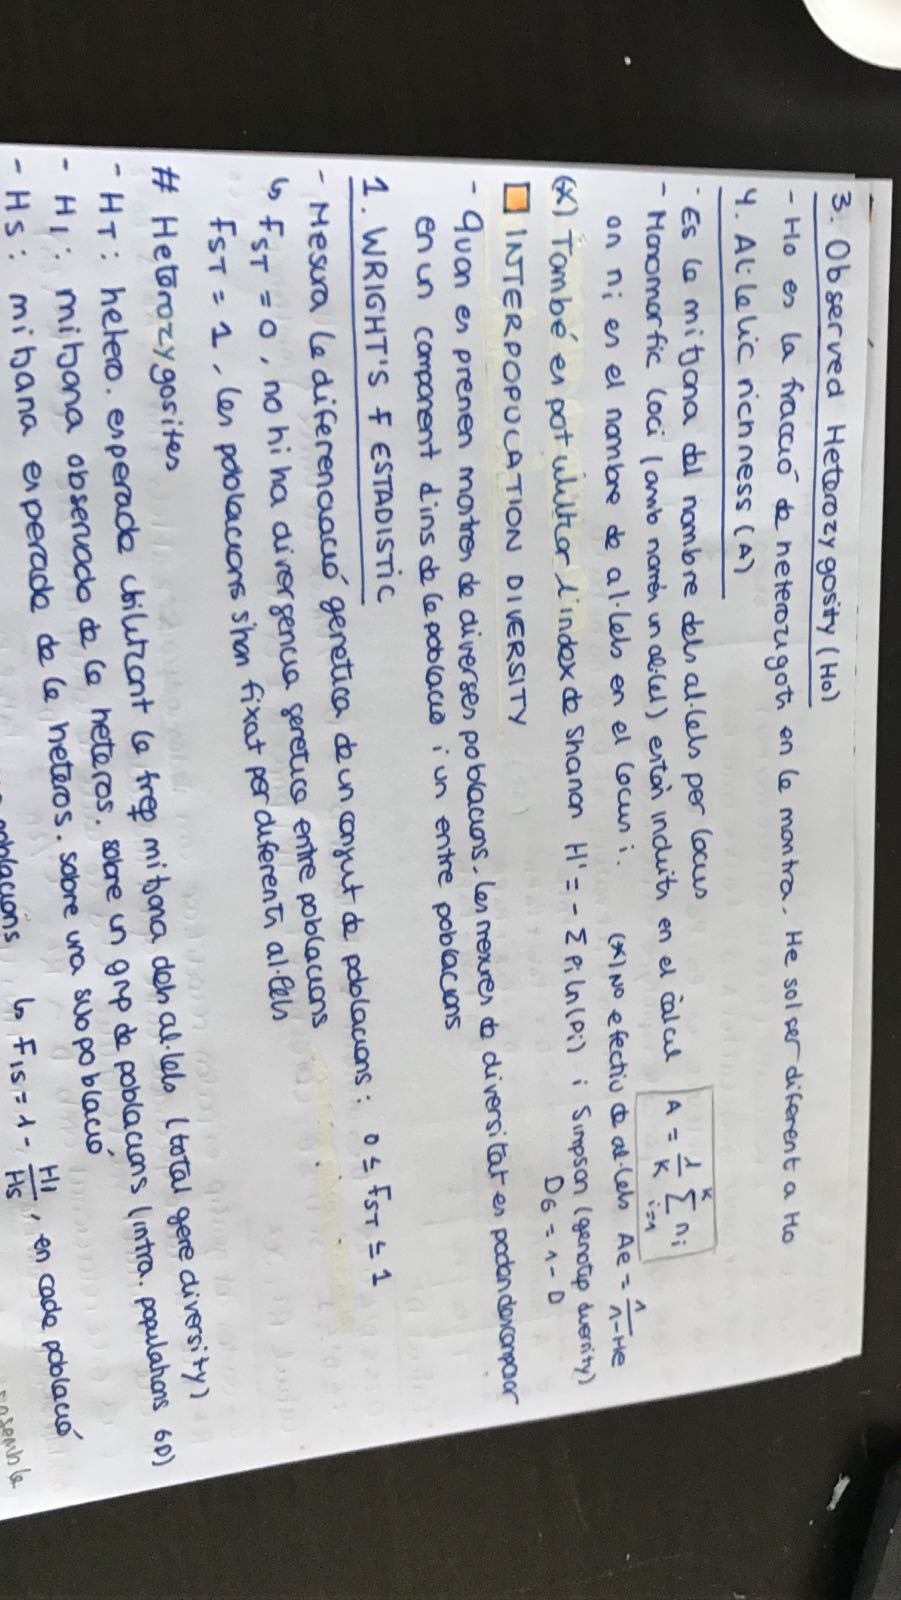 3. Observed Heterozygosity (Ho)
- Ho es la fracció de heterozigots en la mostra. He sol ser diferent a Ho
4. Al·lelic richness (A)
- Es la mitjana del nombre dels al·lels per locus
- Monomorfic loci (amb només un al·lel) están incluits en el càlcul A = 1/K K Σ i=1 ni
on ni es el nombre de al·lels en el locus i. (*) Nº efectiu de al·lels Ae = 1/1-He
(*) També es pot utilitzar l'index de Shanon H' = - Σ Pi ln(Pi) i Simpson (genotip diversity)
DG = 1 - D
INTERPOPULATION DIVERSITY
- Quan es prenen mostres de diverses poblacions. Les mesures de diversitat es poden descompondre
en un component dins de la població i un entre poblacions
1. WRIGHT'S F ESTADISTIC
- Mesura la diferenciació genetica de un conjut de poblacions: 0 ≤ FST ≤ 1
↳ FST = 0, no hi ha divergencia genetica entre poblacions
FST = 1, les poblacions s'han fixat per diferents al·lels
# Heterozygosites
- HT: hetero. esperada utilitzant la freq mitjana dels al·lels (total gene diversity)
- HI: mitjana observada de la heteros. sobre un grup de poblacions (intra. populations GD)
- HS: mitjana esperada de la heteros. sobre una subpoblació
poblacions ↳ FIS = 1 - HI/HS, en cada població
ensemble